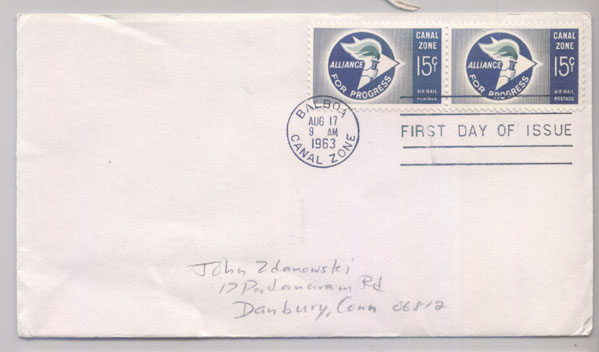 CANAL
ZONE
15¢
ALLIANCE
FOR PROGRESS
AIR MAIL
POSTAGE
CANAL
ZONE
15¢
ALLIANCE
FOR PROGRESS
AIR MAIL
POSTAGE
BALBOA
AUG 17
9 AM
1963
CANAL ZONE
FIRST DAY OF ISSUE
John Zdanowski
17 Padanaram Rd
Danbury, Conn 06812